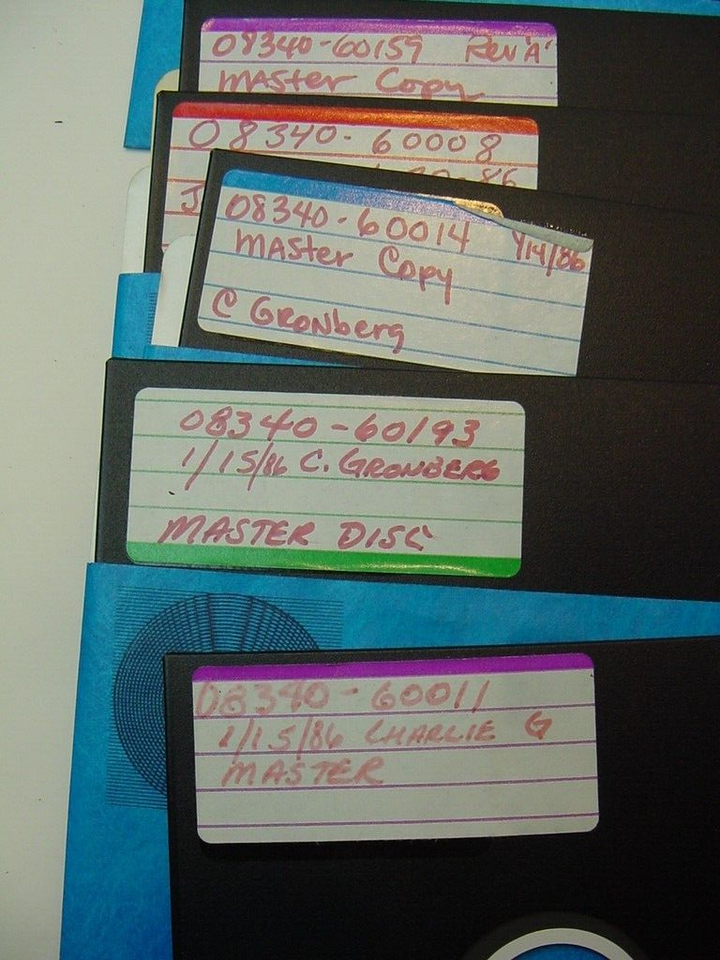 08340-60159 Rev'A'
Master Copy
08340-60008
J
08340-60014 4/14/86
Master Copy
C Gronberg
08340-60193
1/15/86 C. GRONBERG
MASTER DISC
08340-60011
1/15/86 CHARLIE G
MASTER